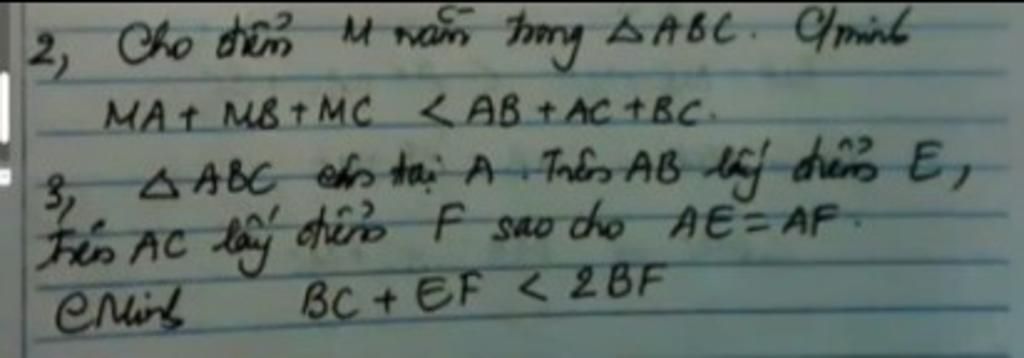 2, Cho điểm M nằm trong △ABC. C/minh
MA + MB + MC < AB + AC + BC.
3, △ABC cân tại A. Trên AB lấy điểm E,
trên AC lấy điểm F sao cho AE = AF.
CMinh BC + EF < 2BF